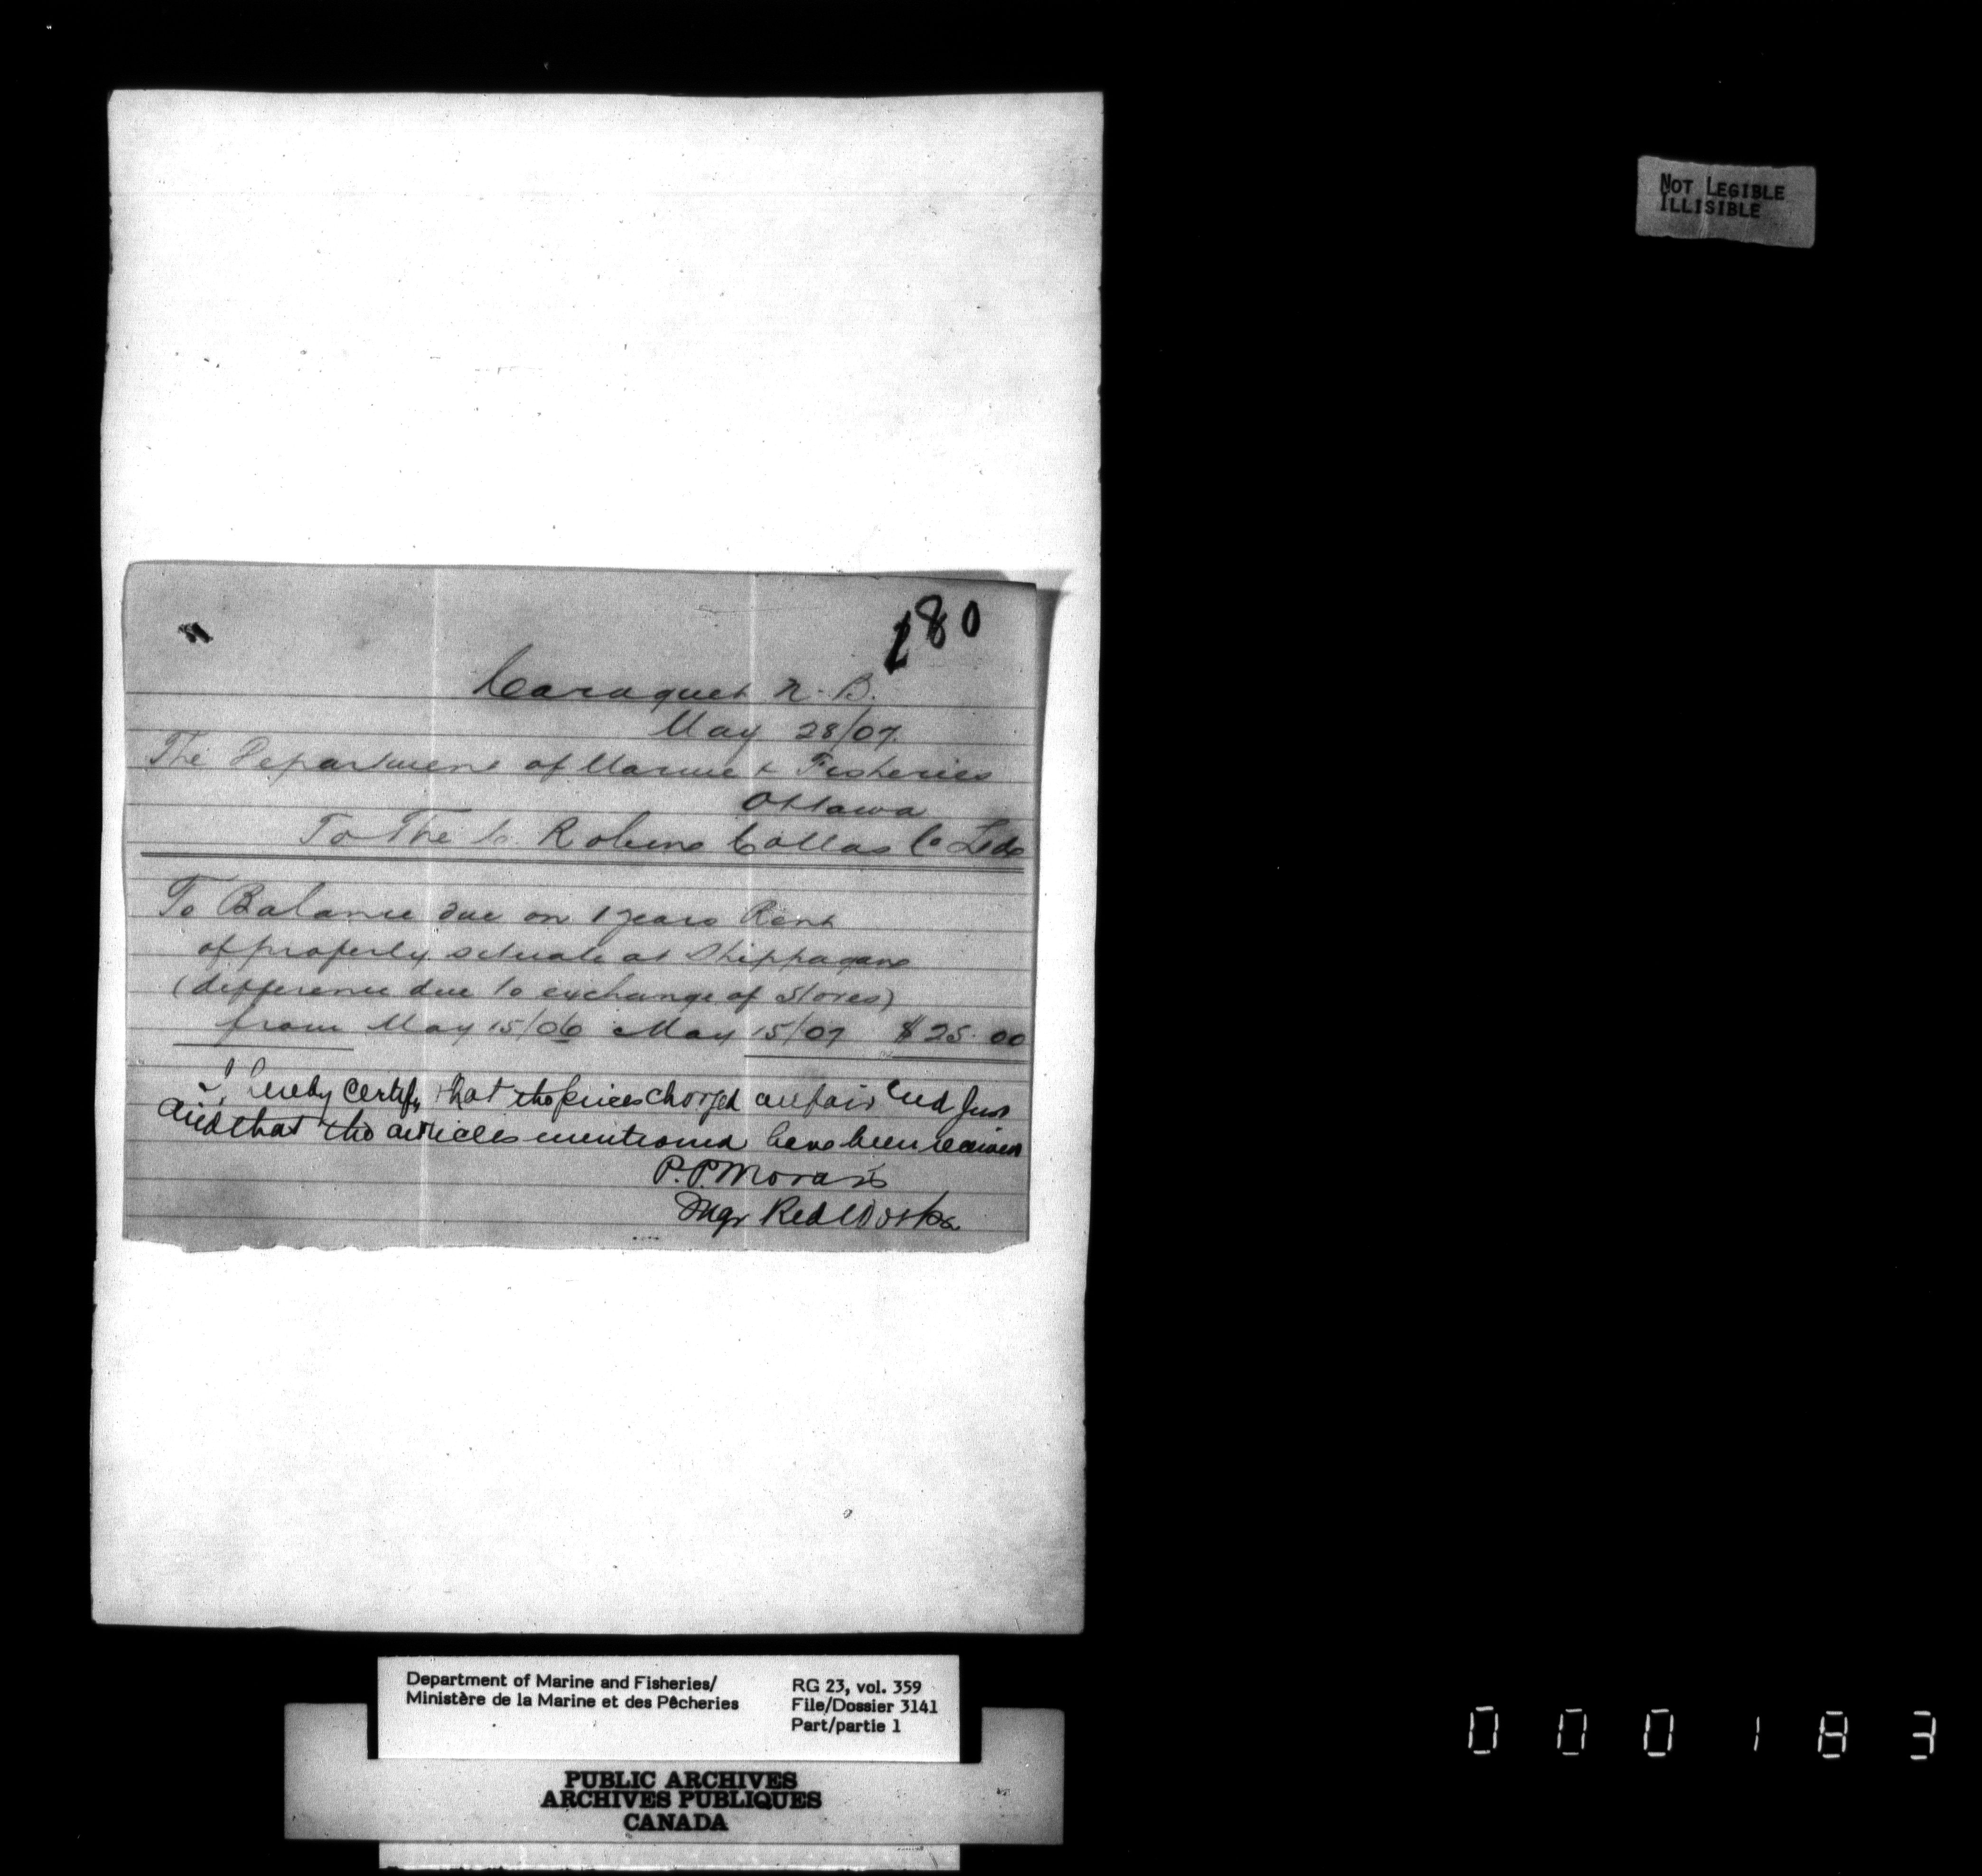 NOT LEGIBLE
ILLISIBLE
180
Caraquet N.B.
May 28/07.
The Department of Marine & Fisheries
Ottawa
To The C. Robins Collas Co Ltd
To Balance due on 1 years Rent
of property situate at Shippagan
(difference due to exchange of Stores)
from May 15/06 May 15/07 $25.00
I hereby certify that the prices charged are fair and just
and that the articles mentioned have been received
P.P. Morais
Mgr Red Works
Department of Marine and Fisheries/
Ministère de la Marine et des Pêcheries
RG 23, vol. 359
File/Dossier 3141
Part/partie 1
PUBLIC ARCHIVES
ARCHIVES PUBLIQUES
CANADA
000183